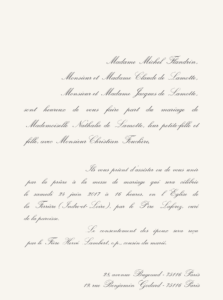 Madame Michel Flandrin,
Monsieur et Madame Claude de Lamotte,
Monsieur et Madame Jacques de Lamotte,
sont heureux de vous faire part du mariage de
Mademoiselle Nathalie de Lamotte, leur petite-fille et
fille, avec Monsieur Christian
Ils vous prient d'assister ou de vous unir
par la prière à la messe de mariage qui sera célébrée
le samedi 24 juin 2017 à 16 heures, en l'Église de
la (Indre-et-Loire), par le Père
de la paroisse.
Le consentement des époux sera reçu
par le Père Hervé o.p., cousin du marié.
avenue 75016 Paris
18, rue Benjamin Godard - 75116 Paris